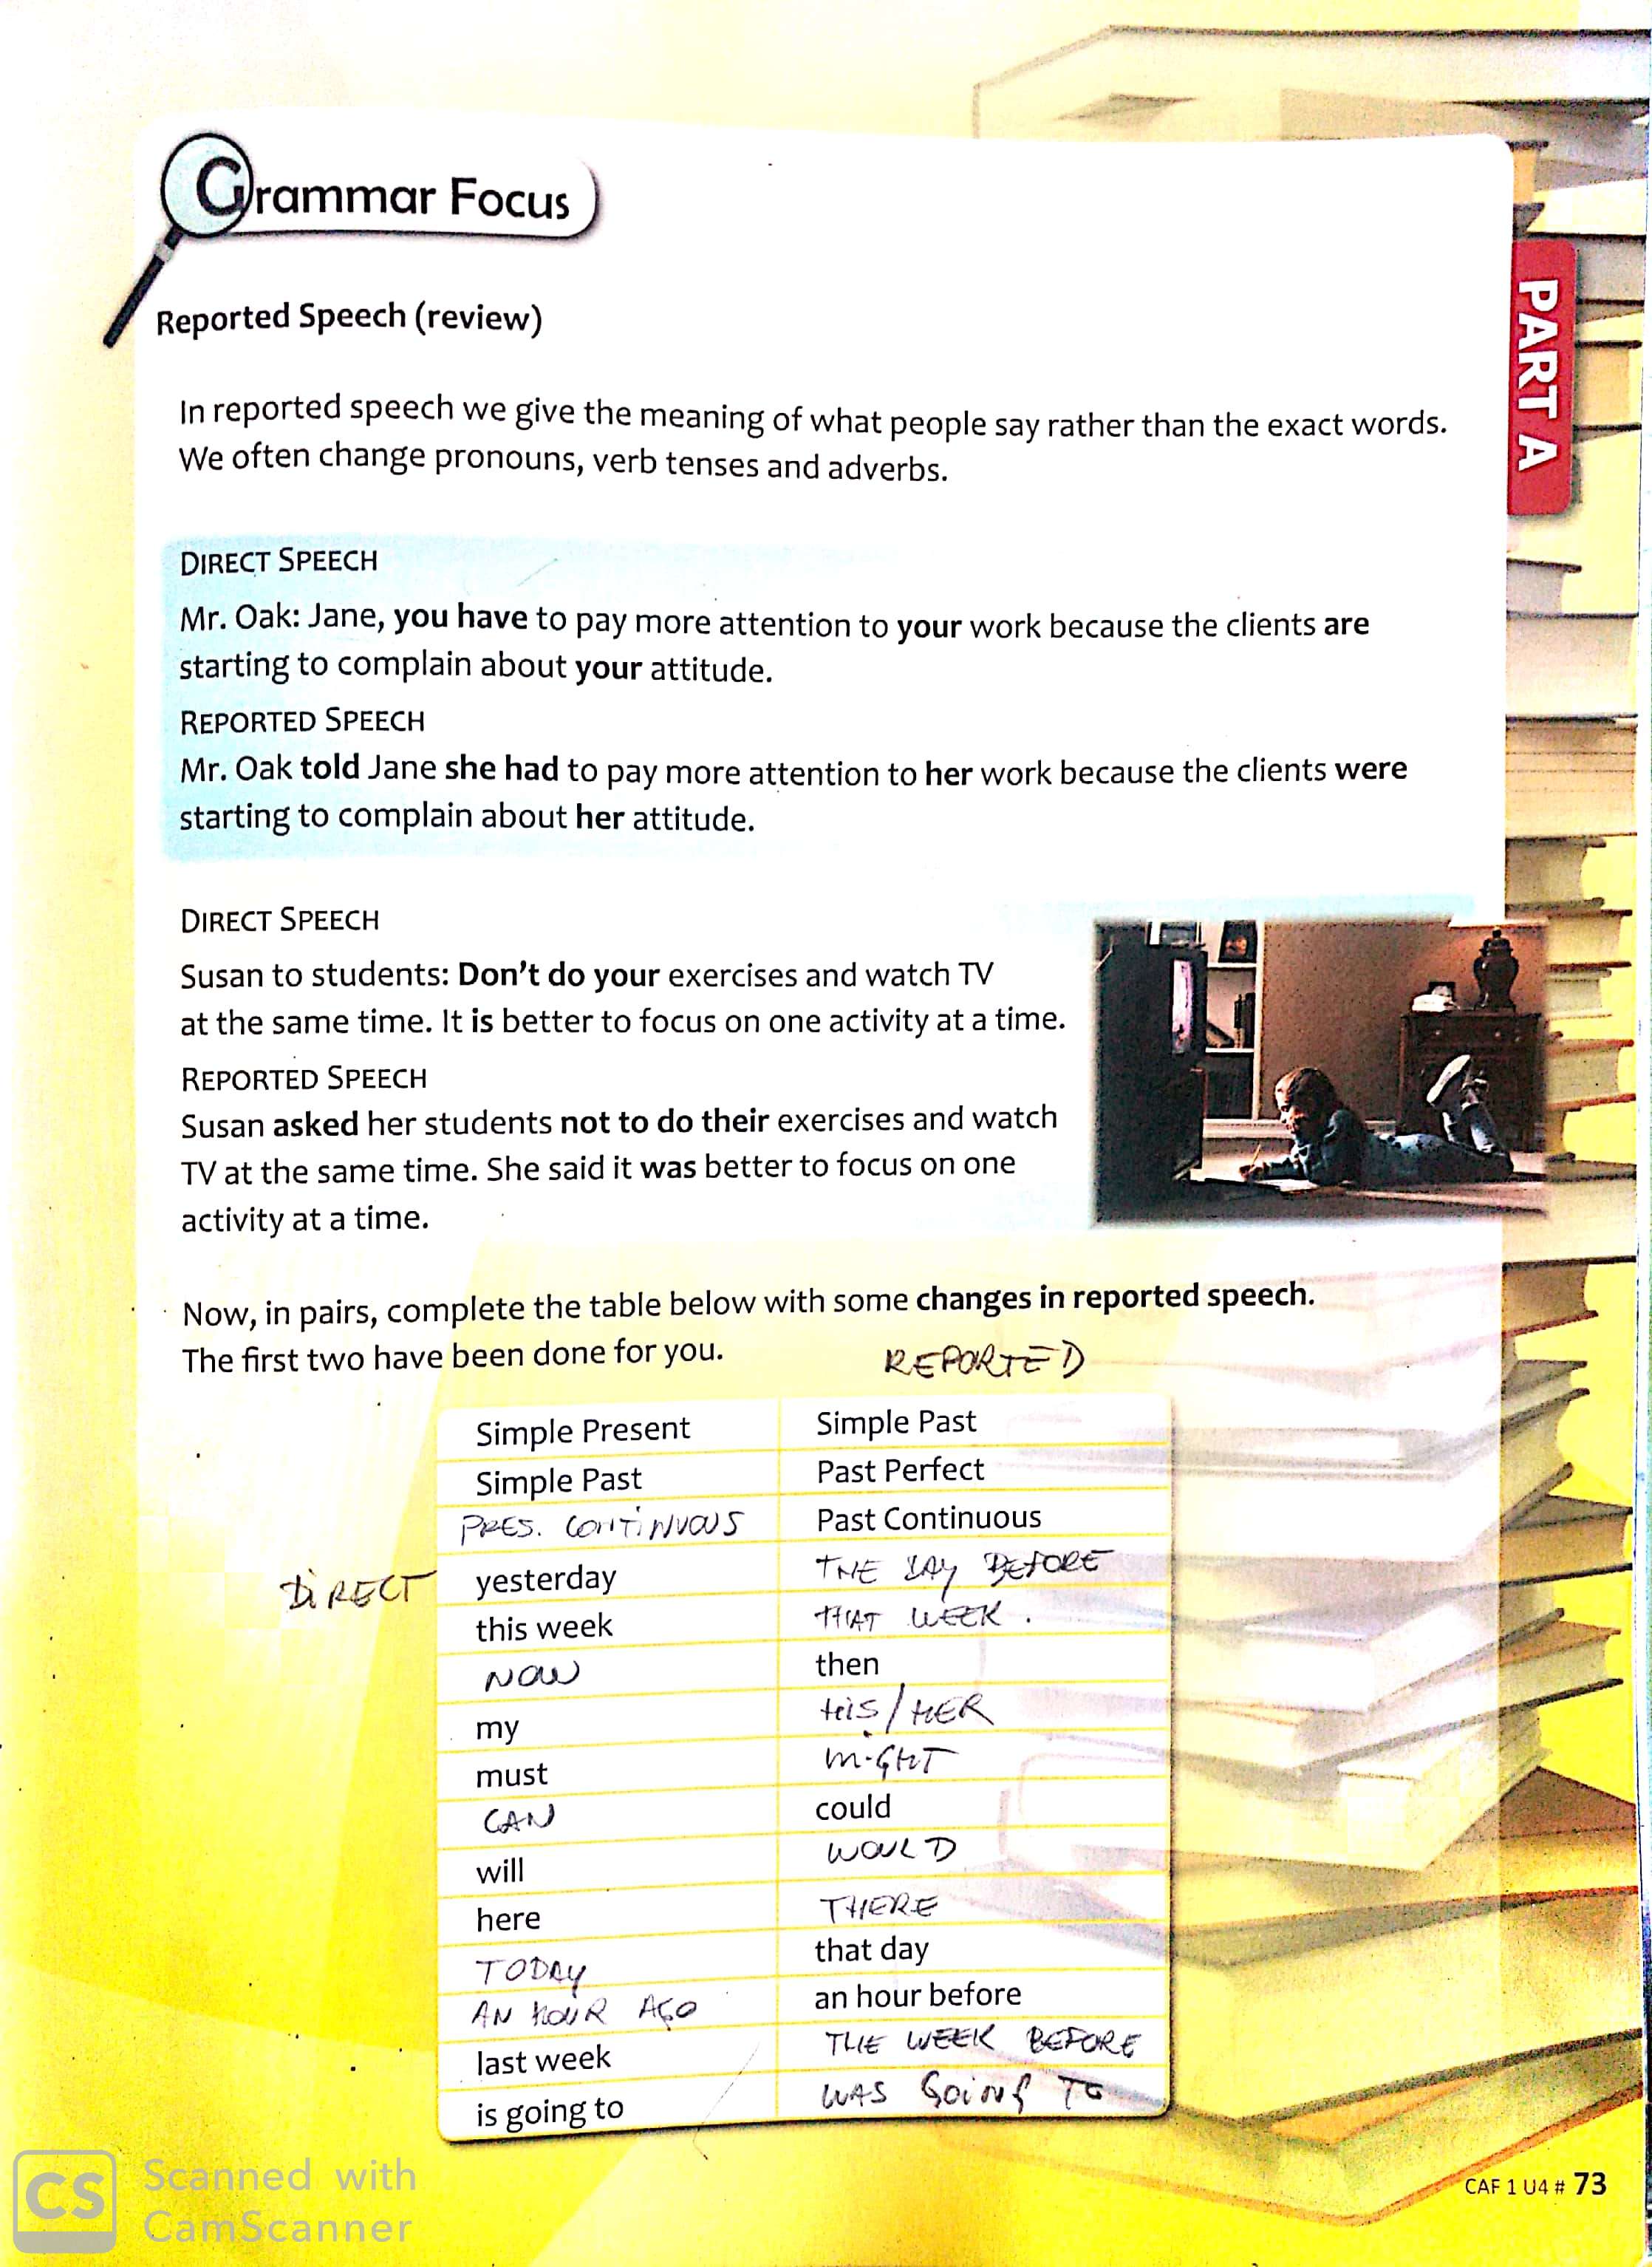 Grammar Focus
Reported Speech (review)
In reported speech we give the meaning of what people say rather than the exact words.
We often change pronouns, verb tenses and adverbs.
PART A
DIRECT SPEECH
Mr. Oak: Jane, you have to pay more attention to your work because the clients are
starting to complain about your attitude.
REPORTED SPEECH
Mr. Oak told Jane she had to pay more attention to her work because the clients were
starting to complain about her attitude.
DIRECT SPEECH
Susan to students: Don't do your exercises and watch TV
at the same time. It is better to focus on one activity at a time.
REPORTED SPEECH
Susan asked her students not to do their exercises and watch
TV at the same time. She said it was better to focus on one
activity at a time.
Now, in pairs, complete the table below with some changes in reported speech.
The first two have been done for you.
REPORTED
Simple Present Simple Past
Simple Past Past Perfect
PRES. CONTINUOUS Past Continuous
DIRECT
yesterday THE DAY BEFORE
this week THAT WEEK.
NOW then
my HIS/HER
must MIGHT
CAN could
will WOULD
here THERE
TODAY that day
AN HOUR AGO an hour before
last week THE WEEK BEFORE
is going to WAS GOING TO
CAF 1 U4 # 73
CS Scanned with
CamScanner